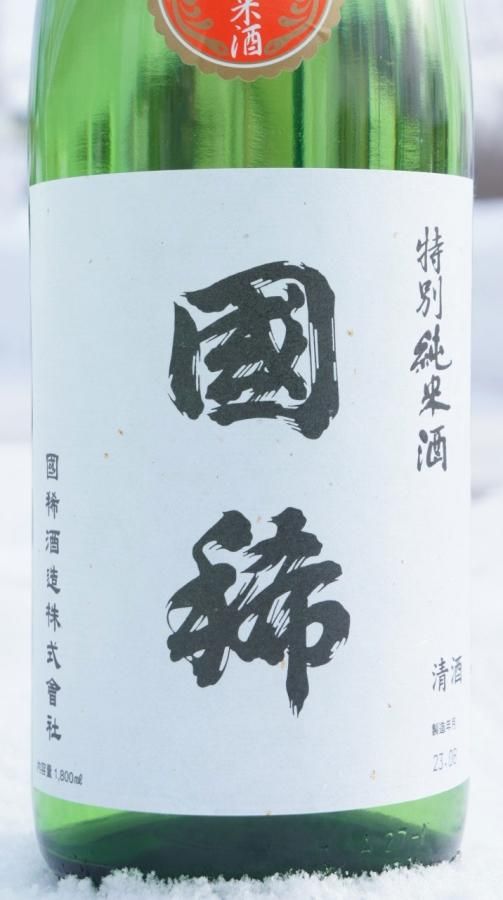 米酒
特別純米酒
國稀
國稀酒造株式會社
清酒
製造年月
23.08
内容量 1,800㎖